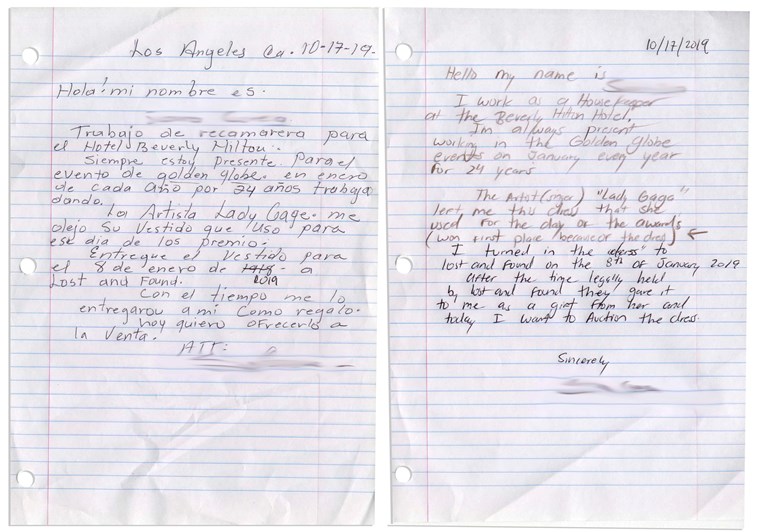 Los Angeles ca. 10-17-19-
Hola! mi nombre es.
Trabajo de recamarera para
el Hotel Beverly Milton.
Siempre estoy presente Para el
evento de golden globe. en enero
de cada año por 24 años trabaja
dando.
La Artista Lady Gage. me
dejo Su Vestido que Uso para
ese dia de los premio.
Entregue el Vestido para
el 8 de enero de 2019 a
Lost and Found.
Con el tiempo me lo
entregarou a mi Como regalo.
hoy quiero ofrecerlo a
la Venta.
ATT:
10/17/2019
Hello my name is
I work as a Housekeeper
at the Beverly Hilton Hotel.
I'm always present
working in the Golden Globe
events on January every year
for 24 years
The Artist (singer) "Lady Gaga"
left me this dress that she
used for the day of the awards
(won first place because of the dress) ←
I turned in the "dress" to
lost and found on the 8th of January 2019
After the time legally held
by lost and found they gave it
to me as a gift from her and
today I want to Auction the dress.
Sincerely